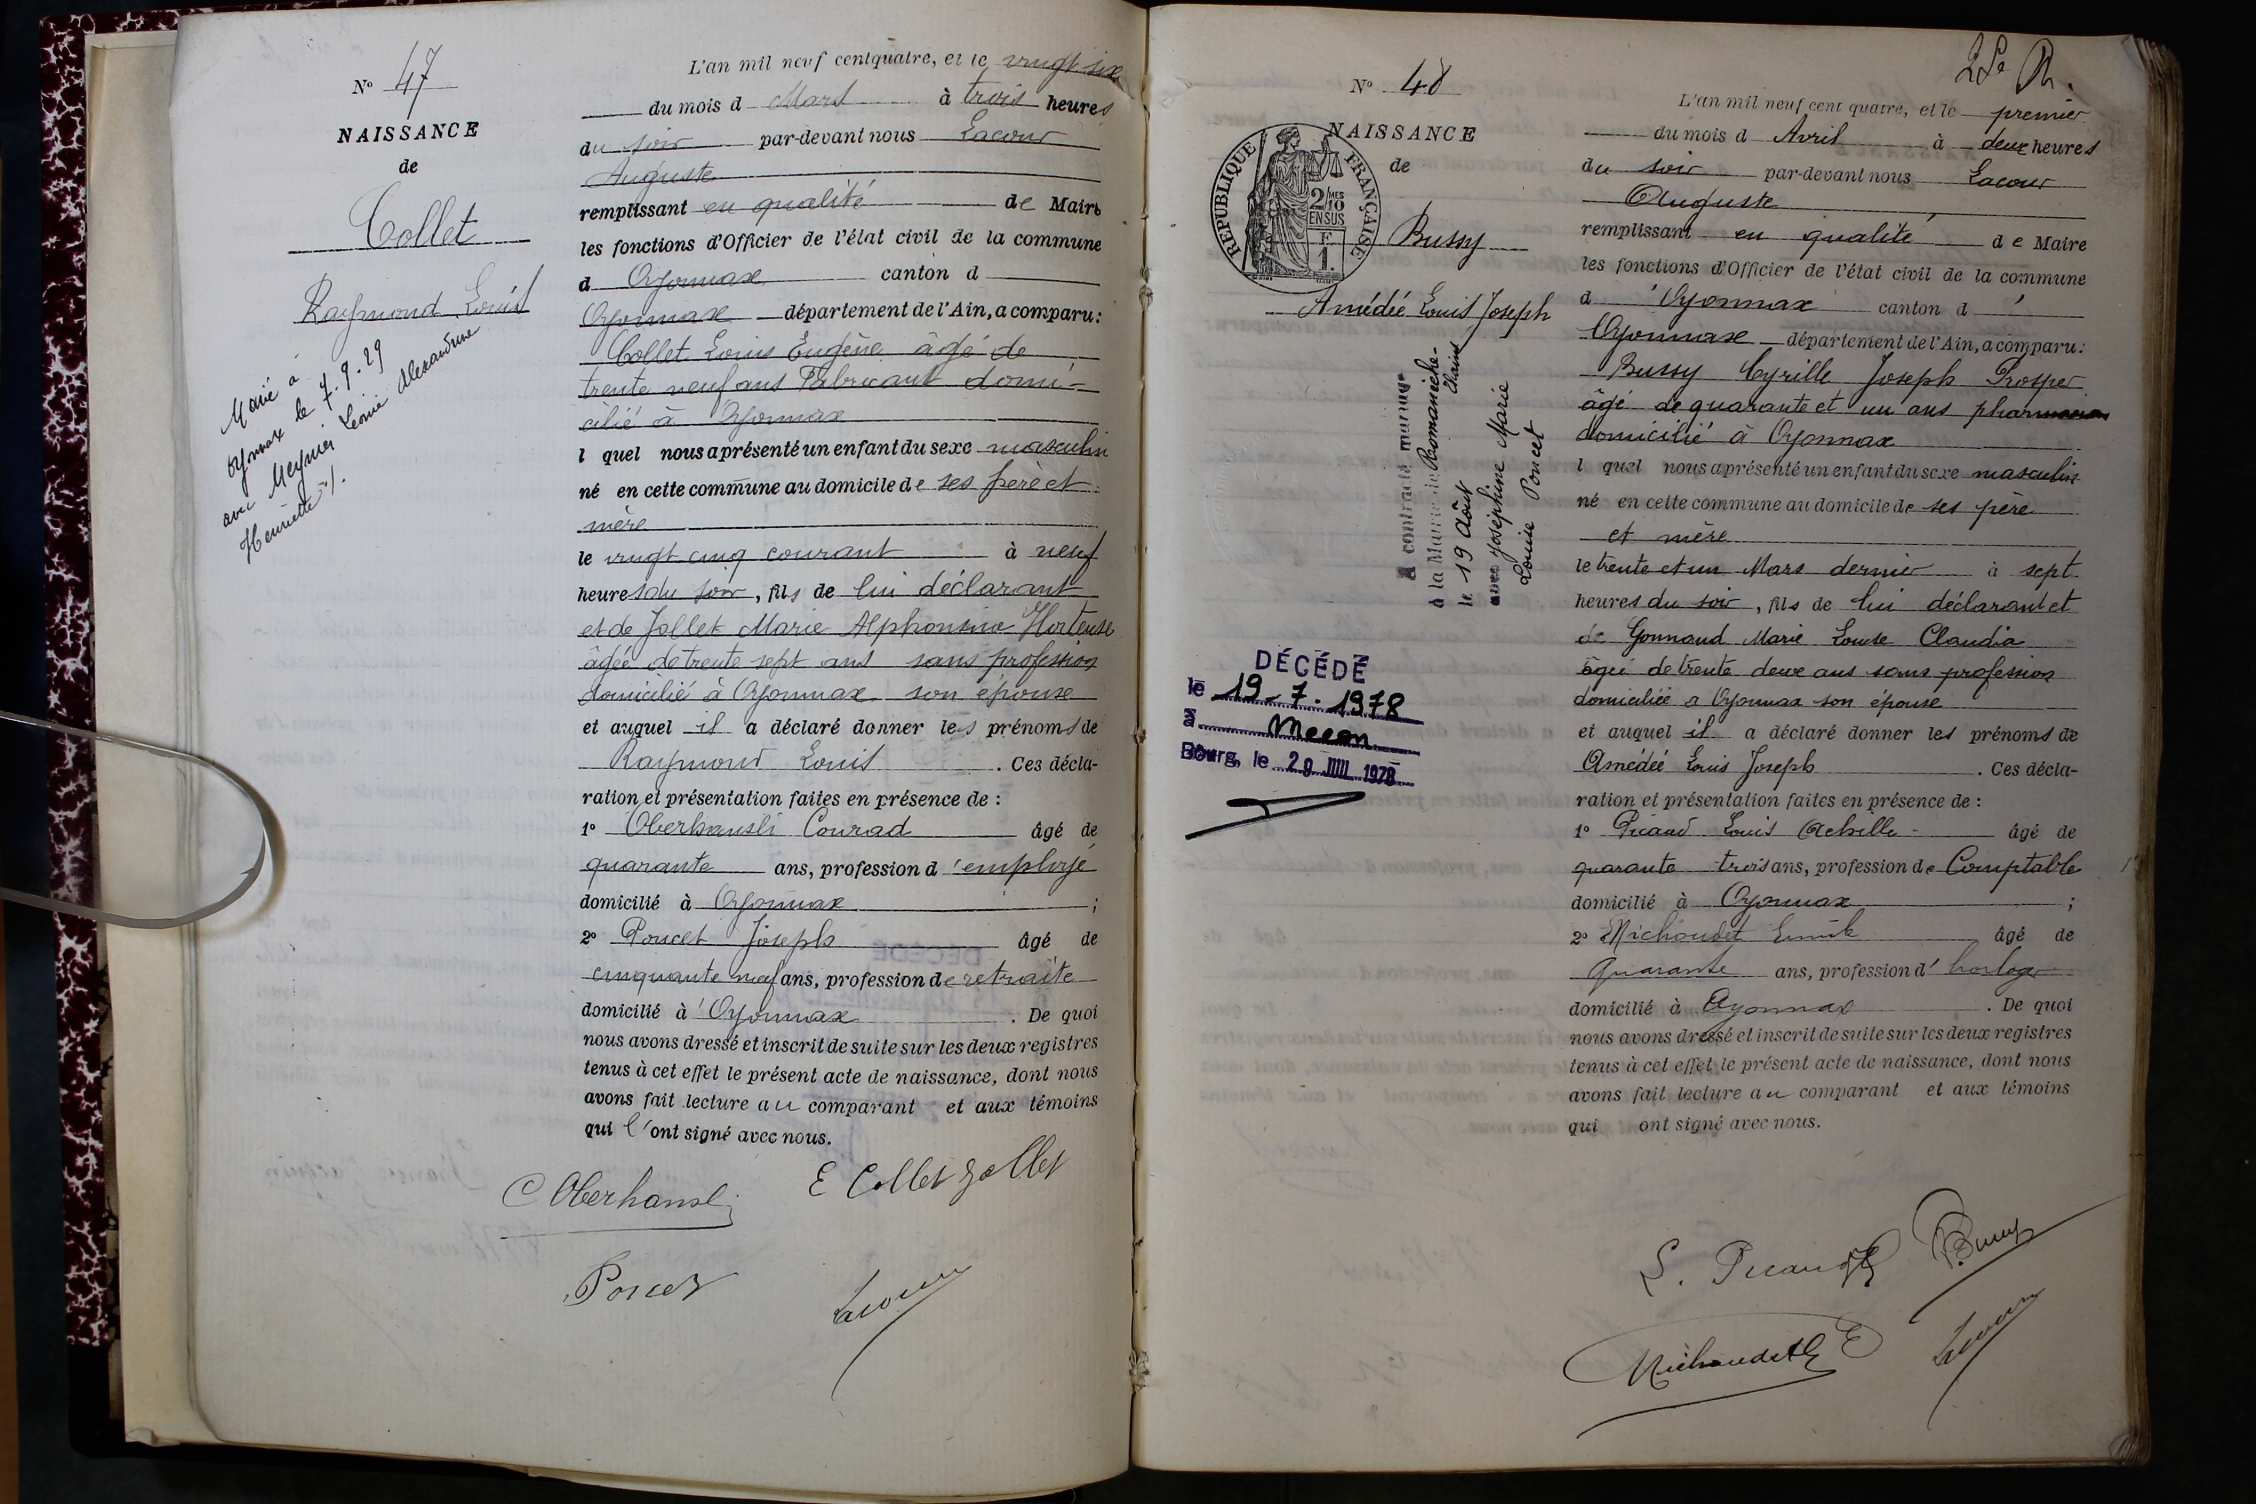 N° 47
NAISSANCE
de
Collet
Raymond Louis
Marié à
Oyonnax le 7.9.29
avec Meynier Léonie Alexandrine
Henriette
L'an mil neuf cent quatre, et le vingt six
du mois d Mars à trois heures
du soir par-devant nous Lacour
Auguste
remplissant en qualité de Maire
les fonctions d'Officier de l'état civil de la commune
d Oyonnax canton d
Oyonnax département de l'Ain, a comparu :
Collet Louis Eugène âgé de
trente neuf ans Fabricant domi-
cilié à Oyonnax
l quel nous a présenté un enfant du sexe masculin
né en cette commune au domicile de ses père et
mère
le vingt cinq courant à neuf
heures du soir, fils de lui déclarant
et de Jollet Marie Alphonsine Hortense
âgée de trente sept ans sans profession
domicilié à Oyonnax son épouse
et auquel il a déclaré donner les prénoms de
Raymond Louis . Ces décla-
ration et présentation faites en présence de :
1° Oberhansli Conrad âgé de
quarante ans, profession d'employé
domicilié à Oyonnax ;
2° Poncet Joseph âgé de
cinquante neuf ans, profession de retraité
domicilié à Oyonnax . De quoi
nous avons dressé et inscrit de suite sur les deux registres
tenus à cet effet le présent acte de naissance, dont nous
avons fait lecture au comparant et aux témoins
qui l'ont signé avec nous.
C Oberhansli
E Collet Jollet
Poncet
Lacour
N° 48
NAISSANCE
de
REPUBLIQUE FRANÇAISE
2/10 MES
EN SUS
F.
1.
Bussy
Amédée Louis Joseph
A contracté mariage
à la Mairie de Romanèche-Thorins
le 19 Août
avec Joséphine Marie
Louise Poncet
DÉCÉDÉ
le 19-7-1978
à Macon
Bourg, le 29 JUIL 1978
L'an mil neuf cent quatre, et le premier
du mois d Avril à deux heures
du soir par-devant nous Lacour
Auguste
remplissant en qualité de Maire
les fonctions d'Officier de l'état civil de la commune
d'Oyonnax canton d'
Oyonnax département de l'Ain, a comparu :
Bussy Cyrille Joseph Prosper
âgé de quarante et un ans pharmacien
domicilié à Oyonnax
l quel nous a présenté un enfant du sexe masculin
né en cette commune au domicile de ses père
et mère
le trente et un Mars dernier à sept
heures du soir, fils de lui déclarant et
de Gonnand Marie Louise Claudia
âgée de trente deux ans sans profession
domiciliée a Oyonnax son épouse
et auquel il a déclaré donner les prénoms de
Amédée Louis Joseph . Ces décla-
ration et présentation faites en présence de :
1° Picaud Louis Achille âgé de
quarante trois ans, profession de Comptable
domicilié à Oyonnax ;
2° Michaudet Emile âgé de
Quarante ans, profession d'horloger
domicilié à Oyonnax . De quoi
nous avons dressé et inscrit de suite sur les deux registres
tenus à cet effet le présent acte de naissance, dont nous
avons fait lecture au comparant et aux témoins
qui ont signé avec nous.
L. Picaud
Bussy
Michaudet E
Lacour